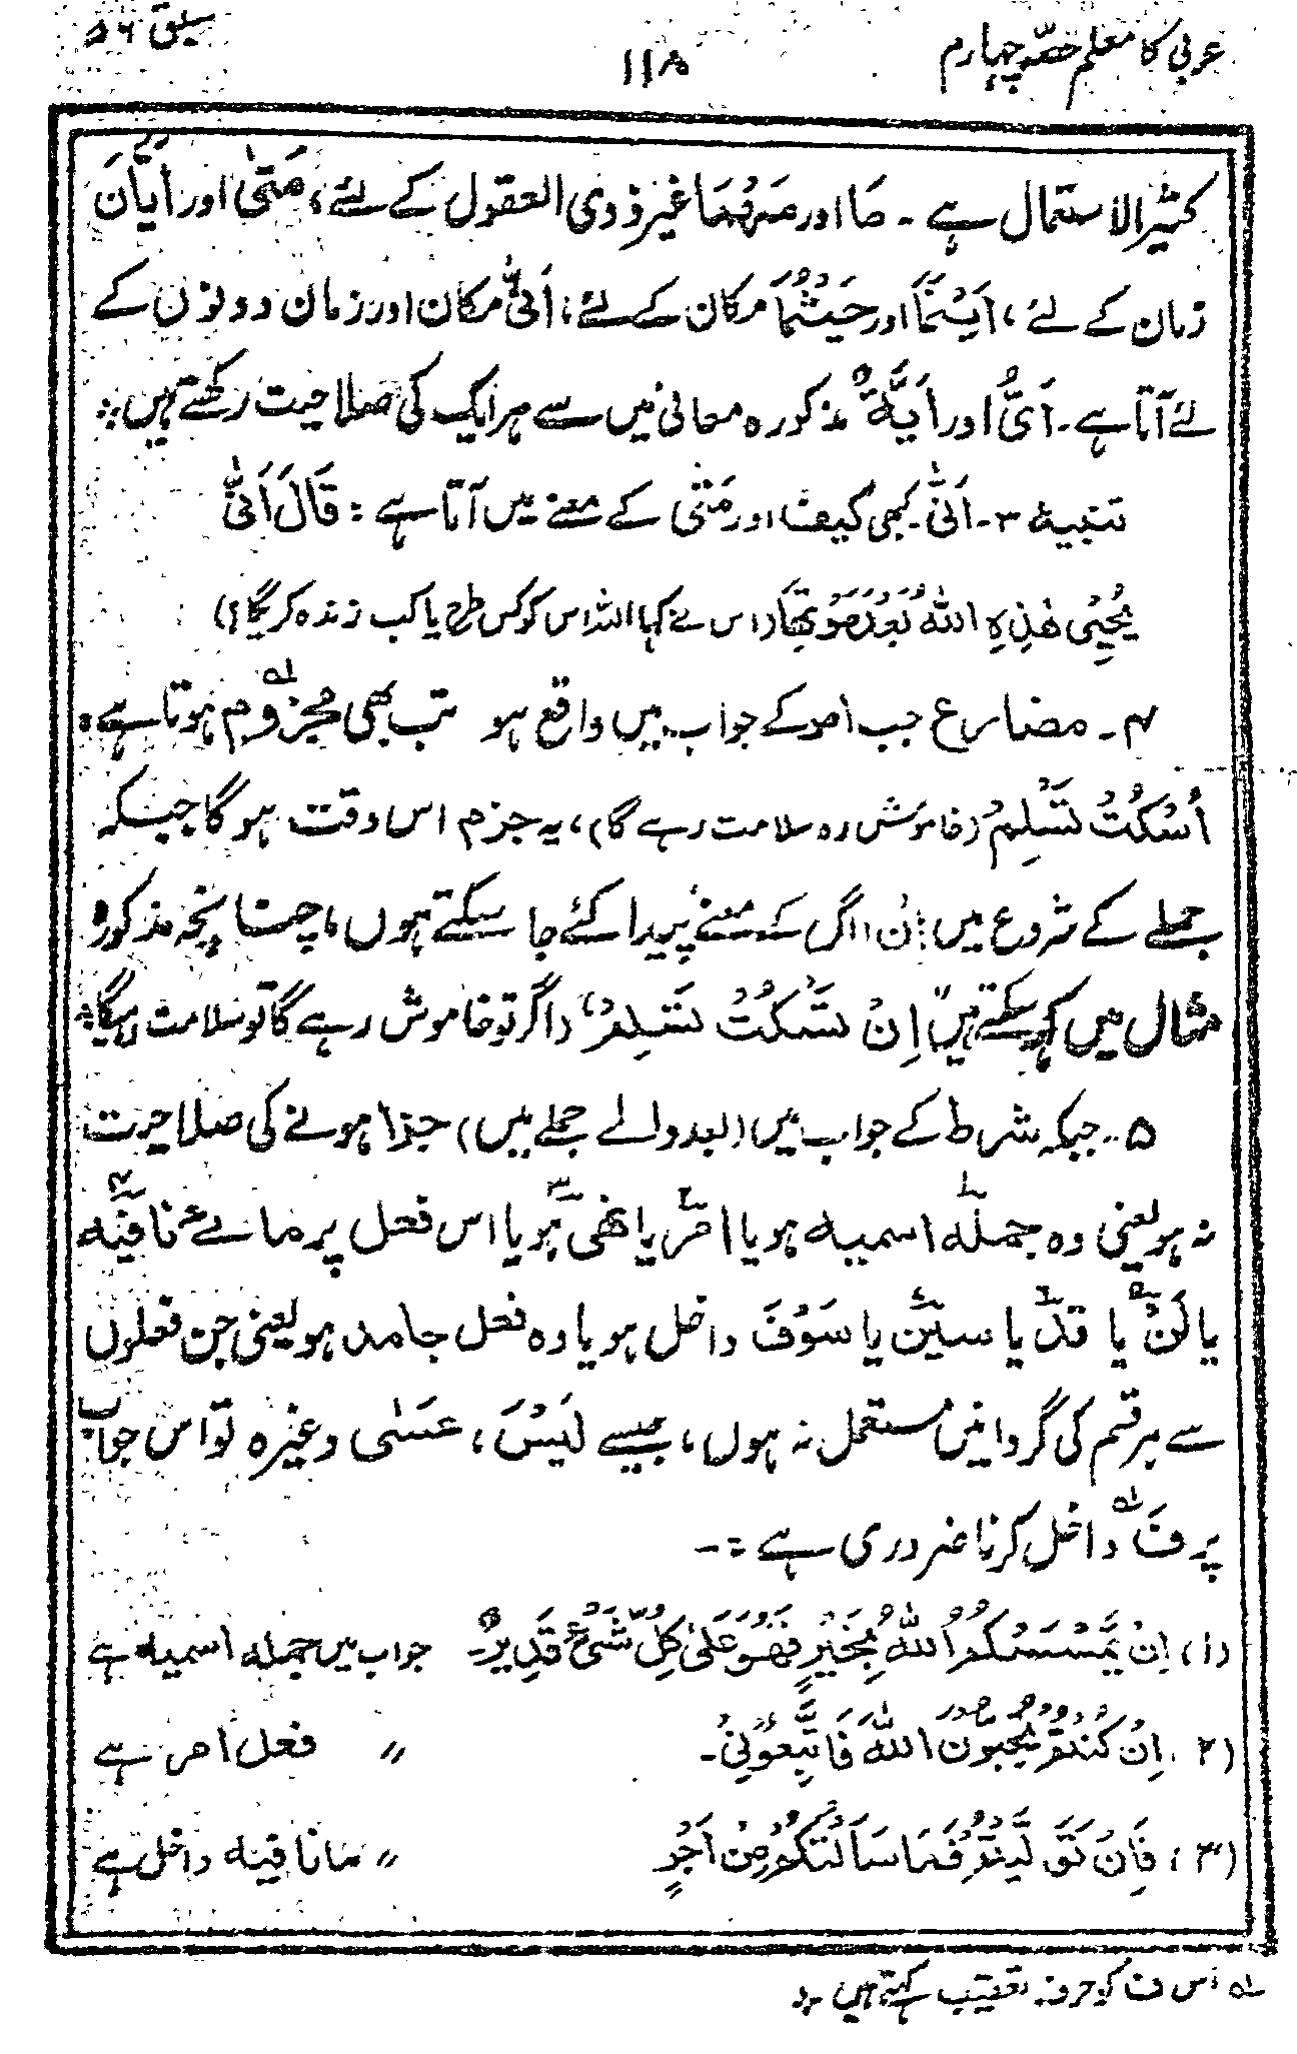 عربی کا معلم حصّہ چہارم
۱۱۸
سبق ۵۶
کثیر الاستعمال ہے۔ مَا اور مَہْمَا غیر ذوی العقول کے لئے، مَتیٰ اور اَیَّانَ
زمان کے لئے، اَیْنَمَا اور حَیْثُمَا مکان کے لئے، اَنّٰی مکان اور زمان دونوں کے
لئے آتا ہے۔ اَیٌّ اور اَیَّةٌ مذکورہ معانی میں سے ہر ایک کی صلاحیت رکھتے ہیں:
تنبیہ ۳۔ اَنّٰی۔ کبھی کیف اور مَتٰی کے معنے میں آتا ہے: قَالَ اَنّٰی
یُحْیِیْ ھٰذِہِ اللّٰہُ بَعْدَ مَوْتِھَا (اس نے کہا اللہ اس کو کس طرح یا کب زندہ کریگا؟)
۴۔ مضارع جب امر کے جواب میں واقع ہو تب بھی مجزوم ہوتا ہے:
اُسْکُتْ تَسْلِمْ (خاموش رہ سلامت رہے گا)، یہ جزم اس وقت ہوگا جبکہ
جملے کے شروع میں اِن (اگر) کے معنے پیدا کئے جا سکتے ہوں، چنانچہ مذکورہ
مثال میں کہہ سکتے ہیں "اِنْ تَسْکُتْ تَسْلِمْ" (اگر تو خاموش رہے گا تو سلامت رہیگا):
۵۔ جبکہ شرط کے جواب میں (بعد والے جملے میں) جزا ہونے کی صلاحیت
نہ ہو یعنی وہ جملہ۱ اسمیہ ہو یا امر۲ یا نھی۳ ہو یا اس فعل پر مائے نافیہ۴
یا لَنْ۵ یا قد۶ یا سین۷ یا سَوْفَ داخل ہو یا وہ فعل جامد ہو یعنی جن فعلوں
سے ہر قسم کی گردانیں مستعمل نہ ہوں، جیسے لَیْسَ، عَسٰی وغیرہ تو اس جواب
پر فَ۱ داخل کرنا ضروری ہے :۔
(۱) اِنْ یَّمْسَسْکُمُ اللّٰہُ بِخَیْرٍ فَھُوَ عَلٰی کُلِّ شَیْءٍ قَدِیْرٌ۔ جواب میں جملہ اسمیہ ہے
(۲) اِنْ کُنْتُمْ تُحِبُّوْنَ اللّٰہَ فَاتَّبِعُوْنِیْ۔ 〃 فعل امر ہے
(۳) فَاِنْ تَوَلَّیْتُمْ فَمَا سَاَلْتُکُمْ مِنْ اَجْرٍ 〃 ما نافیہ داخل ہے
۱ اس ف کو حرف تعقیب کہتے ہیں۔